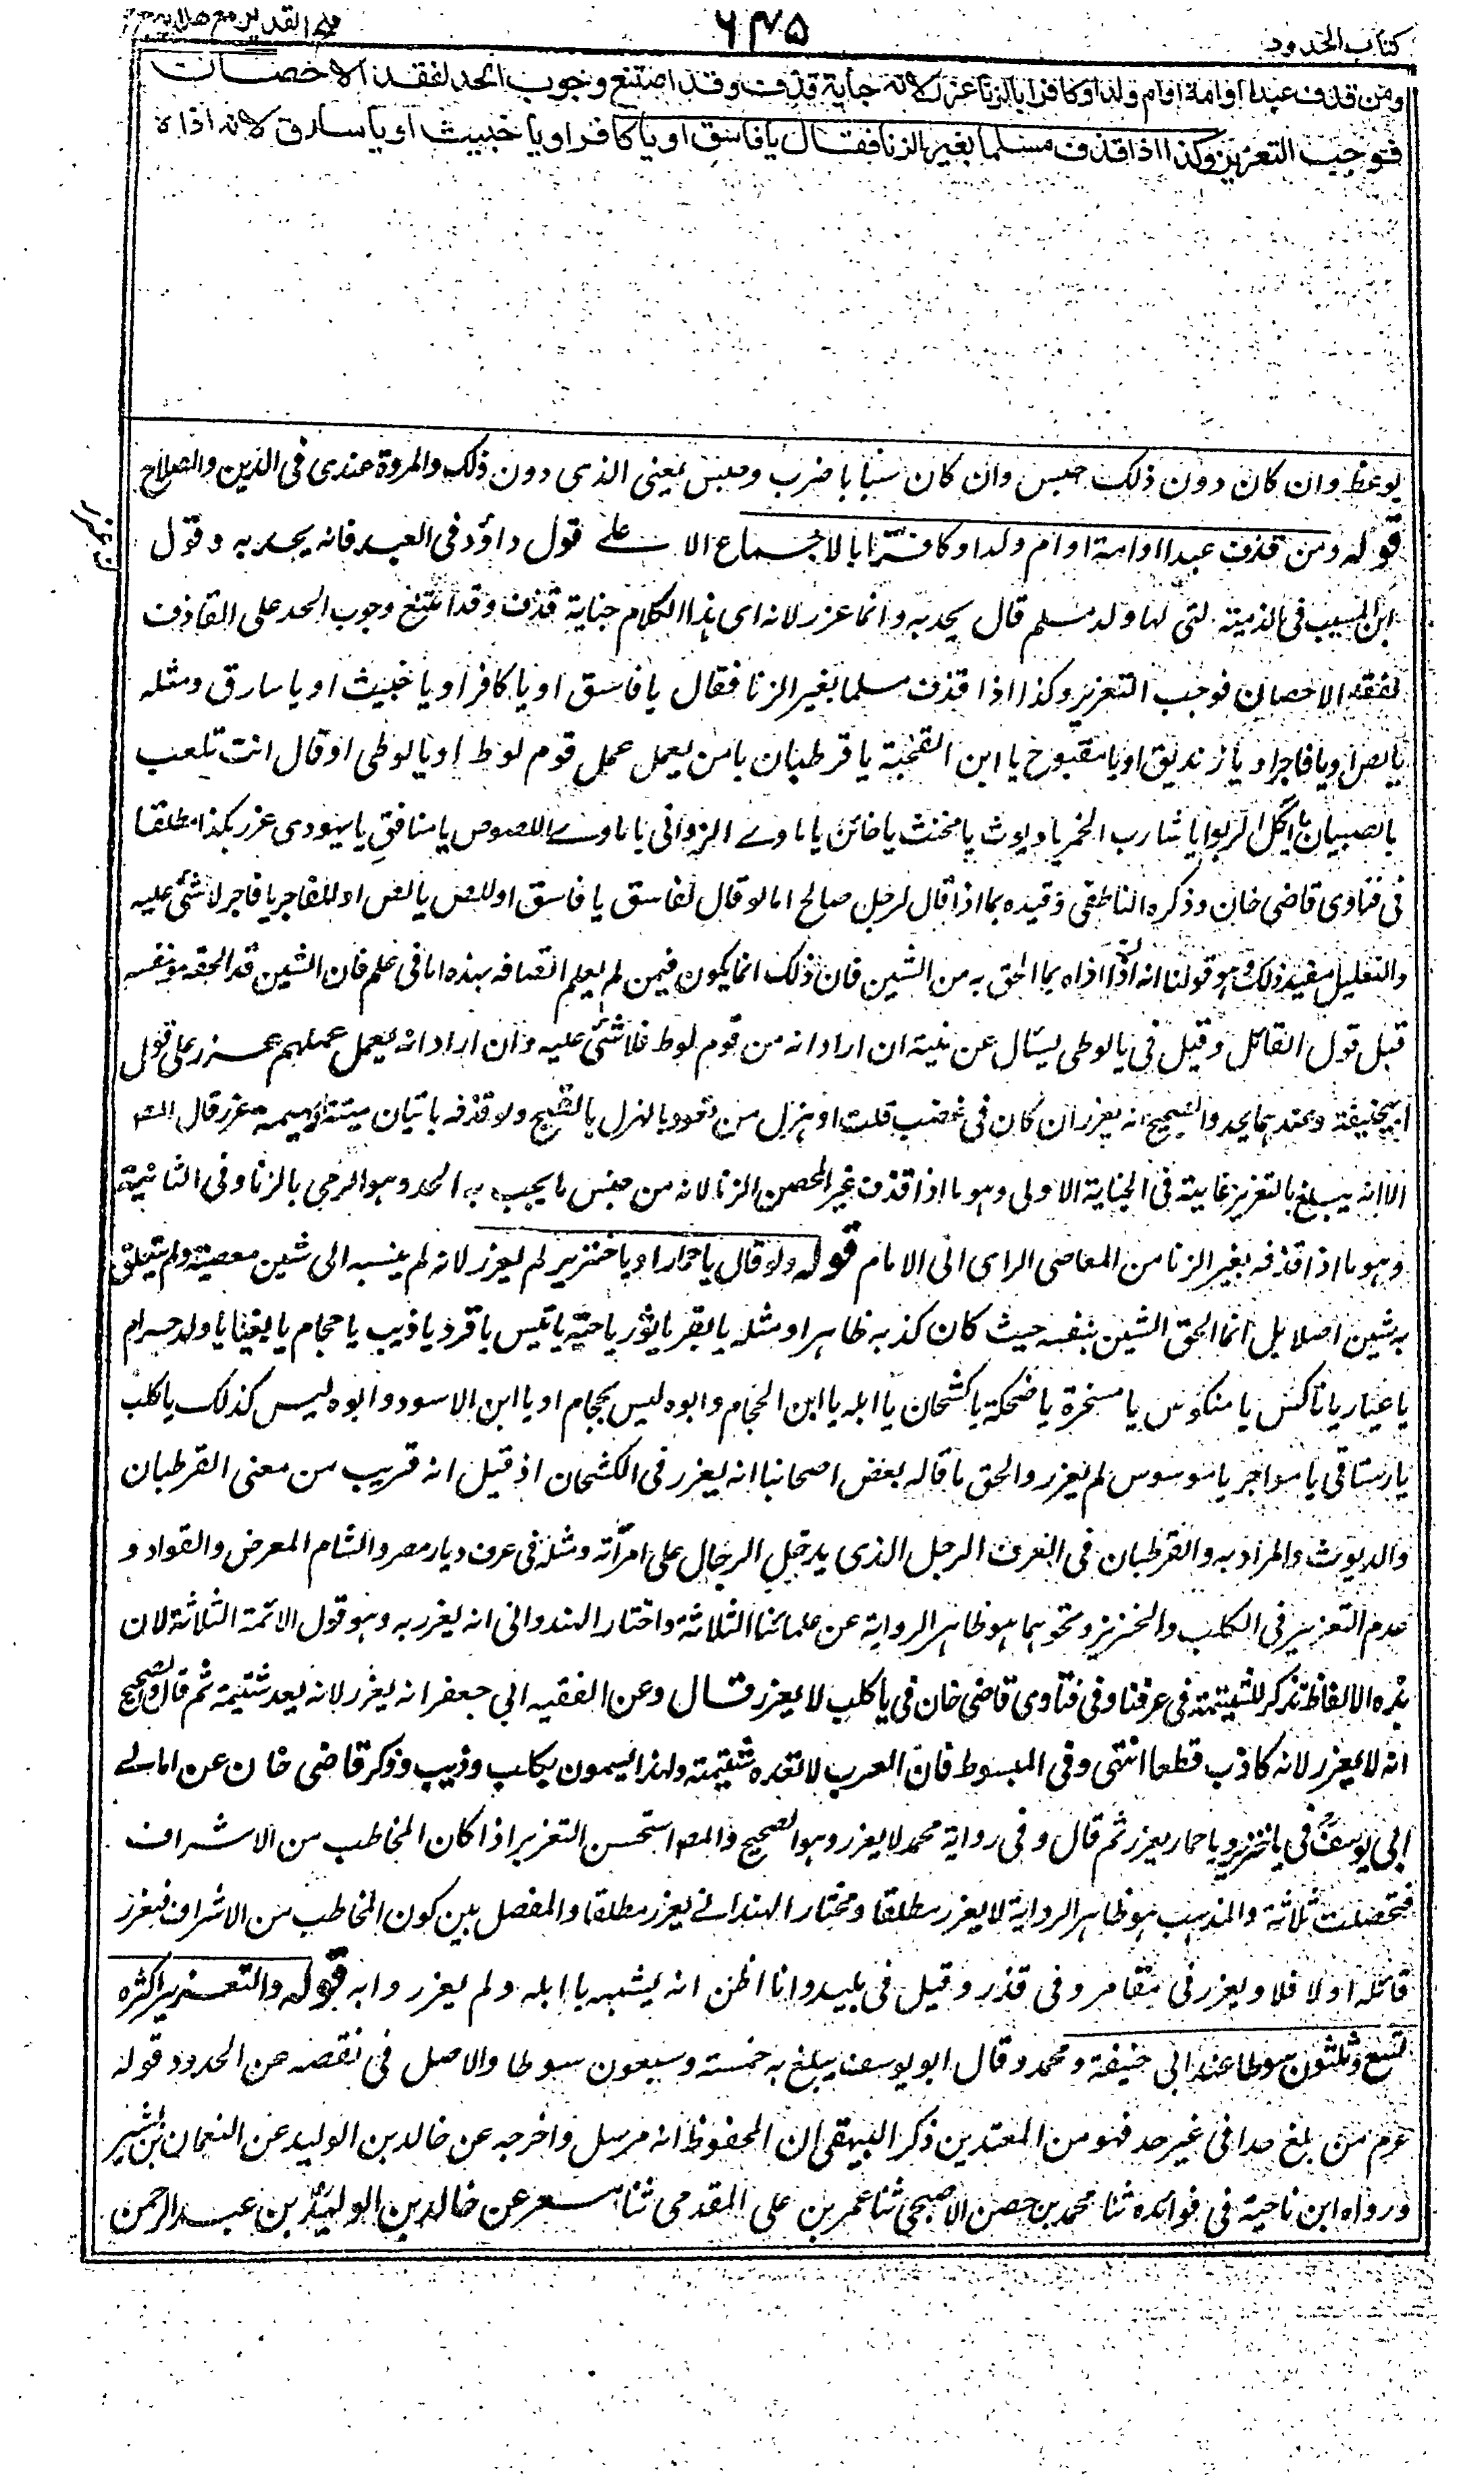 كتاب الحدود
٦٣٥
فتح القدير مع هدايه
ومن قذف عبدا او امة او ام ولد او كافرا بالزنا عزر لانه جناية قذف وقد امتنع وجوب الحد لفقد الاحصان
فتوجب التعزير وكذا اذا قذف مسلما بغير الزنا فقال يا فاسق او يا كافر او يا خبيث او يا سارق لانه اذاه
يوعظ وان كان دون ذلك حبس وان كان سبابا ضرب وحبس يعني الذى دون ذلك والمروة عندى فى الدين والصلاح
قوله ومن قذف عبدا او امة او ام ولد او كافرا بالاجماع الا على قول داؤد فى العبد فانه يحد به وقول
ابن المسيب فى الذمية التى لها ولد مسلم قال يحد به وانما عزر لانه اى هذا الكلام جناية قذف وقد امتنع وجوب الحد على القاذف
لفقد الاحصان فوجب التعزير وكذا اذا قذف مسلما بغير الزنا فقال يا فاسق او يا كافر او يا خبيث او يا سارق ومثله
يا لص او يا فاجر او يا زنديق او يا مقبوح يا ابن القحبة يا قرطبان يا من يعمل عمل قوم لوط او يا لوطى او قال انت تلعب
بالصبيان يا اكل الربوا يا شارب الخمر يا ديوث يا مخنث يا خائن يا ماوى الزوانى يا ماوى اللصوص يا منافق يا يهودى عزر هكذا مطلقا
فى فتاوى قاضى خان وذكره الناطفى وقيده بما اذا قال لرجل صالح اما لو قال لفاسق يا فاسق او للص يا لص او للفاجر يا فاجر لا شئ عليه
والتعليل مفيد ذلك وهو قولنا انه اذاه بما الحق به من الشين فان ذلك انما يكون فيمن لم يعلم اتصافه بهذه اما فى علم فان الشين قد الحقه هو بنفسه
قبل قول القائل وقيل فى يا لوطى يسئال عن نيته ان اراد انه من قوم لوط فلا شئ عليه وان اراد انه يعمل عملهم عزر على قول
ابيحنيفة وعندهما يحد والصحيح انه يعزر ان كان فى غضب قلت او هزل من تعود بالهزل بالقبيح ولو قذفه باتيان ميتة او بهيمة عزر قال المص
الا انه يبلغ بالتعزير غايته فى الجناية الاولى وهو ما اذا قذف غير المحصن الزنا لانه من جنس ما يجب به الحد وهو الرمى بالزنا وفى الثانية
وهو ما اذا قذفه بغير الزنا من المعاصى الراى الى الامام قوله ولو قال يا حمار او يا خنزير لم يعزر لانه لم ينسبه الى شين معصية ولم يتعلق
به شين اصلا بل انما الحق الشين بنفسه حيث كان كذبه ظاهرا ومثله يا بقر يا ثور يا حية يا تيس يا قرد يا ذيب يا حجام يا بغا يا ولد حرام
يا عيار يا ناكس يا منكوس يا مسخرة يا ضحكة يا كشحان يا ابله يا ابن الحجام وابوه ليس بحجام او يا ابن الاسود وابوه ليس كذلك يا كلب
يا رستاقى يا مواجر يا موسوس لم يعزر والحق ما قاله بعض اصحابنا انه يعزر فى الكشحان اذ قيل انه قريب من معنى القرطبان
والديوث والمراد به والقرطبان فى العرف الرجل الذى يدخل الرجال على امرأته ومثله فى عرف ديار مصر والشام المعرص والقواد و
عدم التعزير فى الكلب والخنزير ونحوهما هو ظاهر الرواية عن علمائنا الثلاثة واختار الهندوانى انه يعزر به وهو قول الائمة الثلاثة لان
هذه الالفاظ تذكر للشتيمة فى عرفنا وفى فتاوى قاضى خان فى يا كلب لا يعزر قال وعن الفقيه ابى جعفر انه يعزر لانه يعد شتيمة ثم قال والصحيح
انه لا يعزر لانه كاذب قطعا انتهى وفى المبسوط فان العرب لا تعده شتيمة ولهذا يسمون بكلب وذيب وذكر قاضى خان عن امالى
ابى يوسف فى يا خنزير ويا حمار يعزر ثم قال وفى رواية محمد لا يعزر وهو الصحيح والمص استحسن التعزير اذا كان المخاطب من الاشراف
فتحصلت ثلاثة والمذهب هو ظاهر الرواية لا يعزر مطلقا ومختار الهندانى يعزر مطلقا والمفصل بين كون المخاطب من الاشراف فيعزر
قائله او لا فلا ويعزر فى مقامر وفى قذر وقيل فى بليد وانا اظن انه يشبه يا ابله ولم يعزر وا به قوله والتعزير اكثره
تسع وثلثون سوطا عند ابى حنيفة ومحمد وقال ابو يوسف يبلغ به خمسة وسبعون سوطا والاصل فى نقصه عن الحدود قوله
عزم من بلغ حدا فى غير حد فهو من المعتدين ذكر البيهقى ان المحفوظ انه مرسل واخرجه عن خالد بن الوليد عن النعمان بن بشير
ورواه ابن ناجية فى فوائده ثنا محمد بن حصن الاصبحى ثنا عمر بن على المقدمى ثنا مسعر عن خالد بن الوليد بن عبد الرحمن